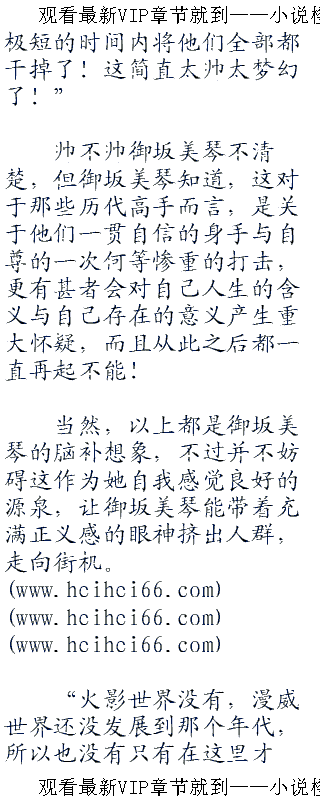 观看最新VIP章节就到——小说检
极短的时间内将他们全部都
干掉了！这简直太帅太梦幻
了！”
帅不帅御坂美琴不清
楚，但御坂美琴知道，这对
于那些历代高手而言，是关
于他们一贯自信的身手与自
尊的一次何等惨重的打击，
更有甚者会对自己人生的含
义与自己存在的意义产生重
大怀疑，而且从此之后都一
直再起不能！
当然，以上都是御坂美
琴的脑补想象，不过并不妨
碍这作为她自我感觉良好的
源泉，让御坂美琴能带着充
满正义感的眼神挤出人群，
走向街机。
(www.hcihci66.com)
(www.hcihci66.com)
(www.hcihci66.com)
“火影世界没有，漫威
世界还没发展到那个年代，
所以也没有只有在这里才
观看最新VIP章节就到——小说检